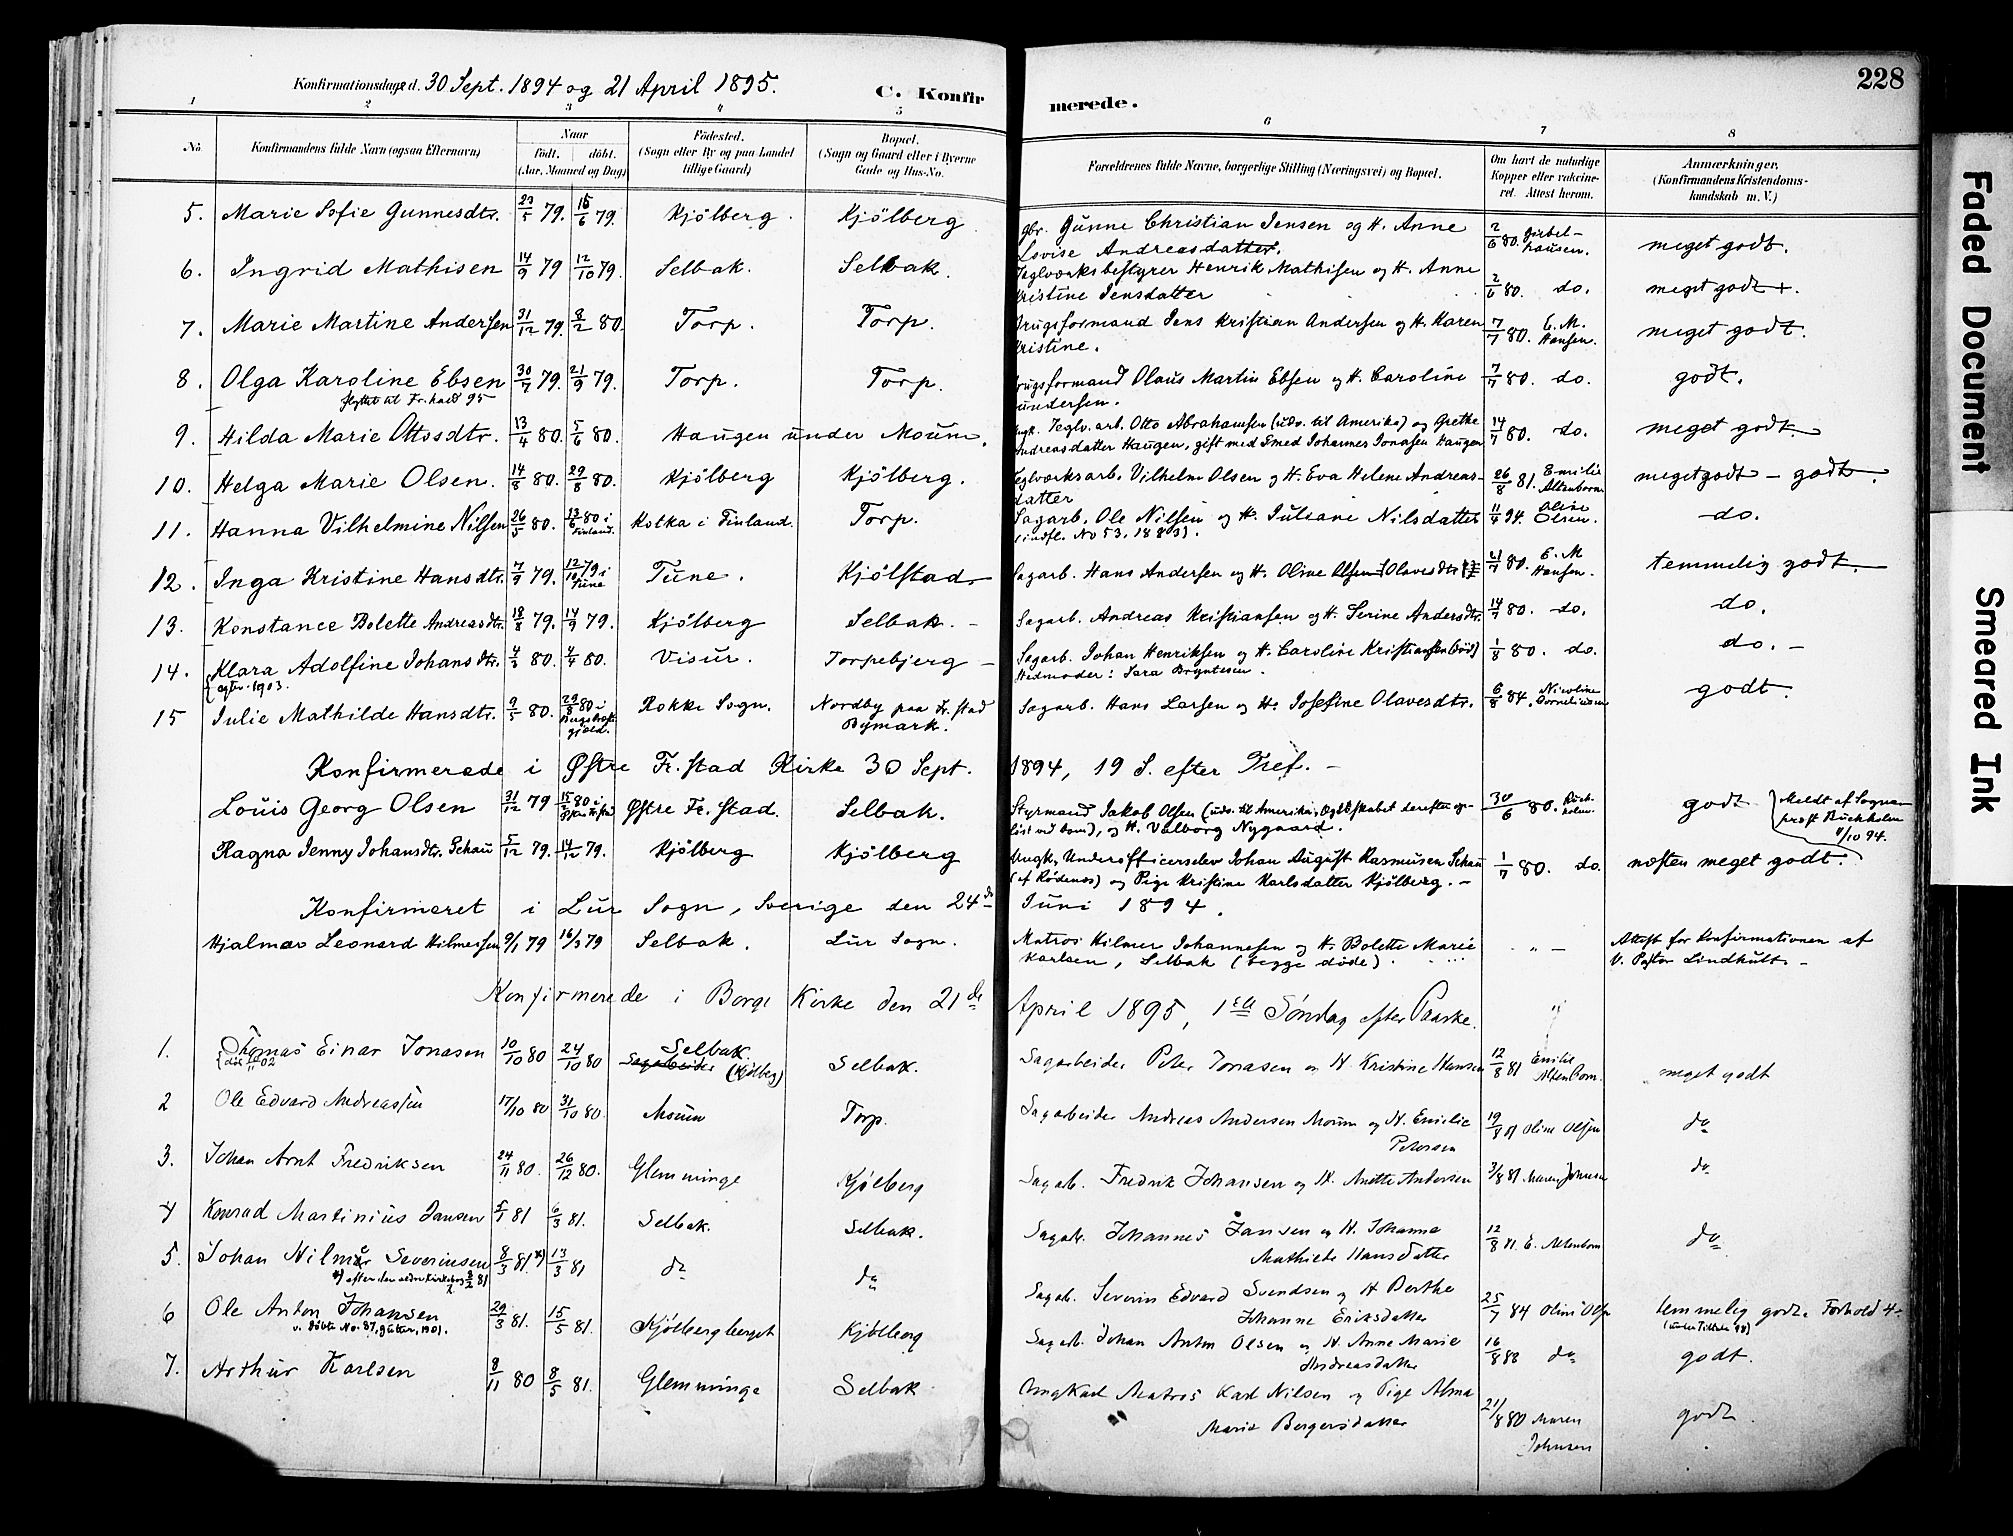 Konfirmationsdage d. 30 Sept. 1894 og 21 April 1895.
C. Konfirmerede.
228
1 2 3 4 5 6 7 8
No. Konfirmandens fulde Navn (ogsaa Efternavn) Naar födt. döbt. (Aar, Maaned og Dag) Födested. (Sogn eller By og paa Landet tillige Gaard) Bopæl. (Sogn og Gaard eller i Byerne Gade og Hus-No. Forældrenes fulde Navne, borgerlige Stilling (Næringsvei) og Bopæl. Om havt de naturlige Kopper eller vakcineret. Attest herom. Anmærkninger. (Konfirmandens Kristendomskundskab m. V.)
5. Marie Sofie Gunnesdtr. 23/5 79. 15/6 79. Kjölberg. Kjölberg gbr. Gunne Christian Jensen og H. Anne
Lovise Andreasdatter. 2/6 80. meget godt.
6. Ingrid Mathisen 14/9 79 12/10 79. Selbak. Selbak. Teglverksbestyrer Henrik Mathisen og H. Anne
Kristine Jensdatter 2/6 80. do. meget godt +.
7. Marie Martine Andersen 31/12 79. 8/2 80. Torp. Torp. Brugsformand Jens Kristian Andersen og H. Karen
Kristine. 7/7 80. E. M. Hansen. meget godt.
8. Olga Karoline Ebsen 30/7 79. 21/9 79. Torp. Torp. Brugsformand Olaus Martin Ebsen og H. Caroline
flyttet til Fr.hald 95 Gundersen. 7/7 80. do. godt.
9. Hilda Marie Ottosdtr. 13/4 80. 5/6 80. Haugen under Moum. Ungk. Teglv. arb. Otto Abrahamsen (udv. til Amerika) og Grethe
Andreasdatter Haugen, gift med Smed Johannes Jonasen Haugen 14/7 80. do. meget godt.
10. Helga Marie Olsen. 14/8 80. 29/8 80. Kjölberg Kjölberg. Teglverksarb. Vilhelm Olsen og H. Eva Helene Andreas-
datter 26/8 81. Emilie Altenborn meget godt - godt.
11. Hanna Vilhelmine Nilsen 26/5 80. 13/6 80 i Finland. Kotka i Finland. Torp. Sagarb. Ole Nilsen og H. Juliane Nilsdatter
(indfl. No 53, 1883). 11/4 94. Oline Olsen. do.
12. Inga Kristine Hansdtr. 7/9 79. 12/10 79 i Tune Tune. Kjölstad. Sagarb. Hans Andersen og H. Oline Olavesdtr 21/7 80. E. M Hansen. temmelig godt.
13. Konstance Bolette Andreasdtr. 18/8 79. 14/9 79. Kjölberg Selbak. - Sagarb. Andreas Kristiansen og H. Serine Andersdtr. 14/7 80. do. do.
14. Klara Adolfine Johansdtr. 4/3 80. 4/4 80. Visur. Torpebjerg - Sagarb. Johan Henriksen og H. Caroline Kristiansen (död)
1903. Stedmoder: Sara Bryntesen. 1/8 80. do. do. -
15 Julie Mathilde Hansdtr. 9/5 80. 29/8 80 i Rokke Sogn. Nordby paa Fr.stad Bymark. Sagarb. Hans Larsen og H. Josefine Olavesdtr. 6/8 84. Nicoline Corneliussen godt.
Konfirmerede i Østre Fr.stad Kirke 30 Sept. 1894, 19 S. efter Tref. -
Louis Georg Olsen 31/12 79 15/2 80 i Østre Fr.stad Østre Fr.stad. Selbak. Styrmand Jakob Olsen (udv. til Amerika, Ægteskabet derefter op-
löst ved dom), og H. Valborg Nygaard. 30/6 80. godt Meldt af Sogne-
præst Buckholm 4/10 94.
Ragna Jenny Johansdtr. Schau 5/12 79. 14/12 79. Kjölberg Kjölberg Ungk. Underofficerselev Johan August Rasmusen Schau
(af Rödenes) og Pige Kristine Karlsdatter Kjölberg. - 1/7 80. do. næsten meget godt.
Konfirmeret i Lur Sogn, Sverige den 24de Juni 1894.
Hjalmar Leonard Hilmersen 9/1 79 16/3 79 Selbak. Lur Sogn. Matros Hilmer Johannesen og H. Bolette Marie
Karlsen, Selbak (begge döde). " - Attest for Konfirmationen af
V. Pastor Lindhult. -
Konfirmerede i Borge Kirke den 21de April 1895, 1ste Søndag efter Paaske.
1. Thomas Einar Jonasen 10/10 80 24/10 80 Selbak. (Kjölberg) Selbak. Sagarbeider Peter Jonasen og H. Kristine Hansen 12/8 81 Emilie Altenborn. meget godt
2 Ole Edvard Andreassen 17/10 80 31/10 80. Moum Torp. Sagarbeider Andreas Andersen Moum og H. Emilie
Petersen 19/8 81 Oline Olsen do
3. Johan Arnt Fredriksen 24/11 80. 26/12 80. Glemminge Kjölberg Sagarb. Fredrik Johansen og H. Anette Andersen 3/8 81 Maren Johnsen do
4 Konrad Martinius Jansen 5/1 81 6/3 81. Selbak. Selbak. Sagarb. Johannes Jansen og H. Johanne
Mathilde Hansdatter 12/8 81. E. Altenborn do
5. Johan Hilmer Severinsen 8/3 81 *) 13/3 81 do do Sagarb. Severin Edvard Svendsen og H Berthe
*) efter den ældre Kirkebog 8/2 81 Johanne Eriksdatter 25/7 84 Oline Olsen temmelig godt. Forhold 4-
6 Ole Anton Johansen 29/3 81. 15/5 81. Kjölbergberget Kjölberg Sagarb. Johan Anton Olsen og H. Anne Marie
v. döbte No. 87, gutter, 1901. Andreasdatter 16/8 88 do godt.
7. Arthur Karlsen 8/11 80 8/5 81. Glemminge Selbak Ungkarl Matros Karl Nilsen og Pige Alma
Marie Borgersdatter 21/8 80 Maren Johnsen godt.
Faded Document
Smeared Ink